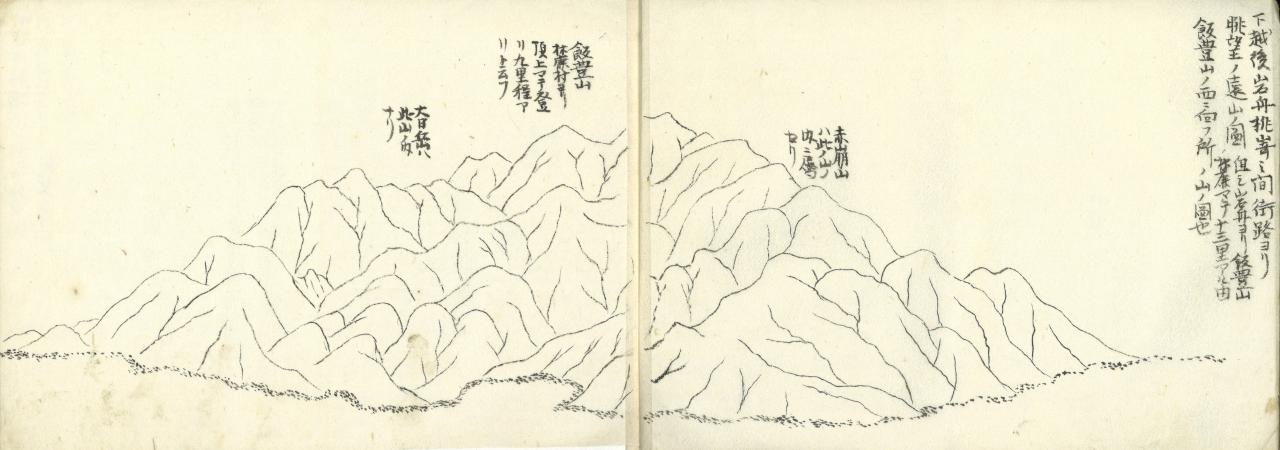 下越後岩舟桃嵜之間街路ヨリ
眺望ノ遠山ノ圖 但シ岩舟ヨリ飯豊山
麓マテ十三里アル由
飯豊山ノ西ニ向フ所ノ山ノ圖也
赤山崩山
ハ此ノ山ノ
内ニ属
セリ
飯豊山
麓村ヨリ
頂上マテ登
リ九里程ア
リト云フ
大日岳ハ
此山ノ内
ナリ